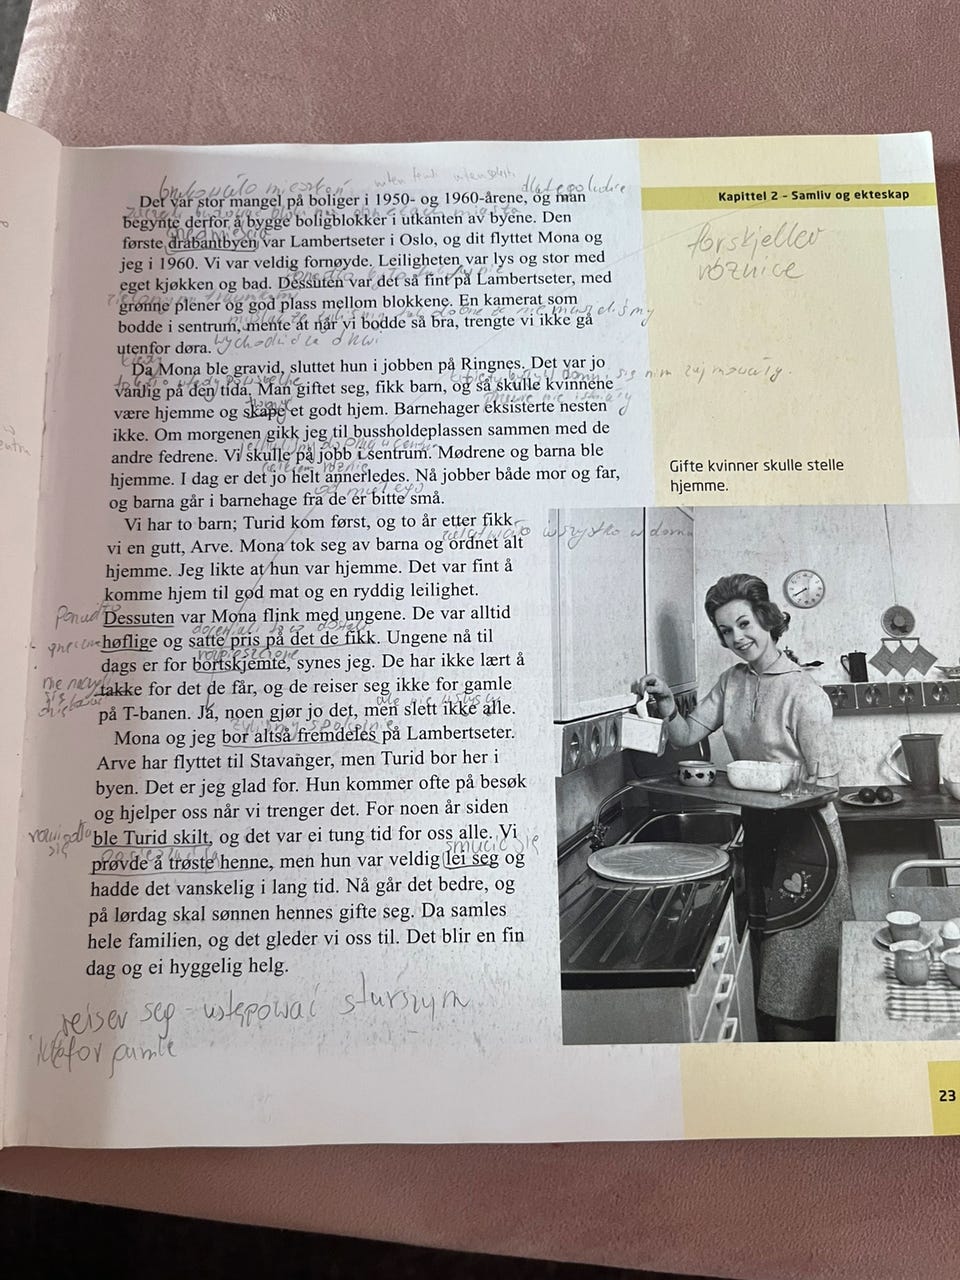 Kapittel 2 – Samliv og ekteskap
forskjeller
różnice
Det var stor mangel på boliger i 1950- og 1960-årene, og man
begynte derfor å bygge boligblokker i utkanten av byene. Den
første drabantbyen var Lambertseter i Oslo, og dit flyttet Mona og
jeg i 1960. Vi var veldig fornøyde. Leiligheten var lys og stor med
eget kjøkken og bad. Dessuten var det så fint på Lambertseter, med
grønne plener og god plass mellom blokkene. En kamerat som
bodde i sentrum, mente at når vi bodde så bra, trengte vi ikke gå
utenfor døra.
Da Mona ble gravid, sluttet hun i jobben på Ringnes. Det var jo
vanlig på den tida. Man giftet seg, fikk barn, og så skulle kvinnene
være hjemme og skape et godt hjem. Barnehager eksisterte nesten
ikke. Om morgenen gikk jeg til bussholdeplassen sammen med de
andre fedrene. Vi skulle på jobb i sentrum. Mødrene og barna ble
hjemme. I dag er det jo helt annerledes. Nå jobber både mor og far,
og barna går i barnehage fra de er bitte små.
Vi har to barn; Turid kom først, og to år etter fikk
vi en gutt, Arve. Mona tok seg av barna og ordnet alt
wszystko w domu
hjemme. Jeg likte at hun var hjemme. Det var fint å
komme hjem til god mat og en ryddig leilighet.
Ponadto
Dessuten var Mona flink med ungene. De var alltid
høflige og satte pris på det de fikk. Ungene nå til
dags er for bortskjemte, synes jeg. De har ikke lært å
takke for det de får, og de reiser seg ikke for gamle
på T-banen. Ja, noen gjør jo det, men slett ikke alle.
Mona og jeg bor altså fremdeles på Lambertseter.
Arve har flyttet til Stavanger, men Turid bor her i
byen. Det er jeg glad for. Hun kommer ofte på besøk
og hjelper oss når vi trenger det. For noen år siden
ble Turid skilt, og det var ei tung tid for oss alle. Vi
smucić się
prøvde å trøste henne, men hun var veldig lei seg og
hadde det vanskelig i lang tid. Nå går det bedre, og
på lørdag skal sønnen hennes gifte seg. Da samles
hele familien, og det gleder vi oss til. Det blir en fin
dag og ei hyggelig helg.
reiser seg – ustępować starszym
Gifte kvinner skulle stelle
hjemme.
23